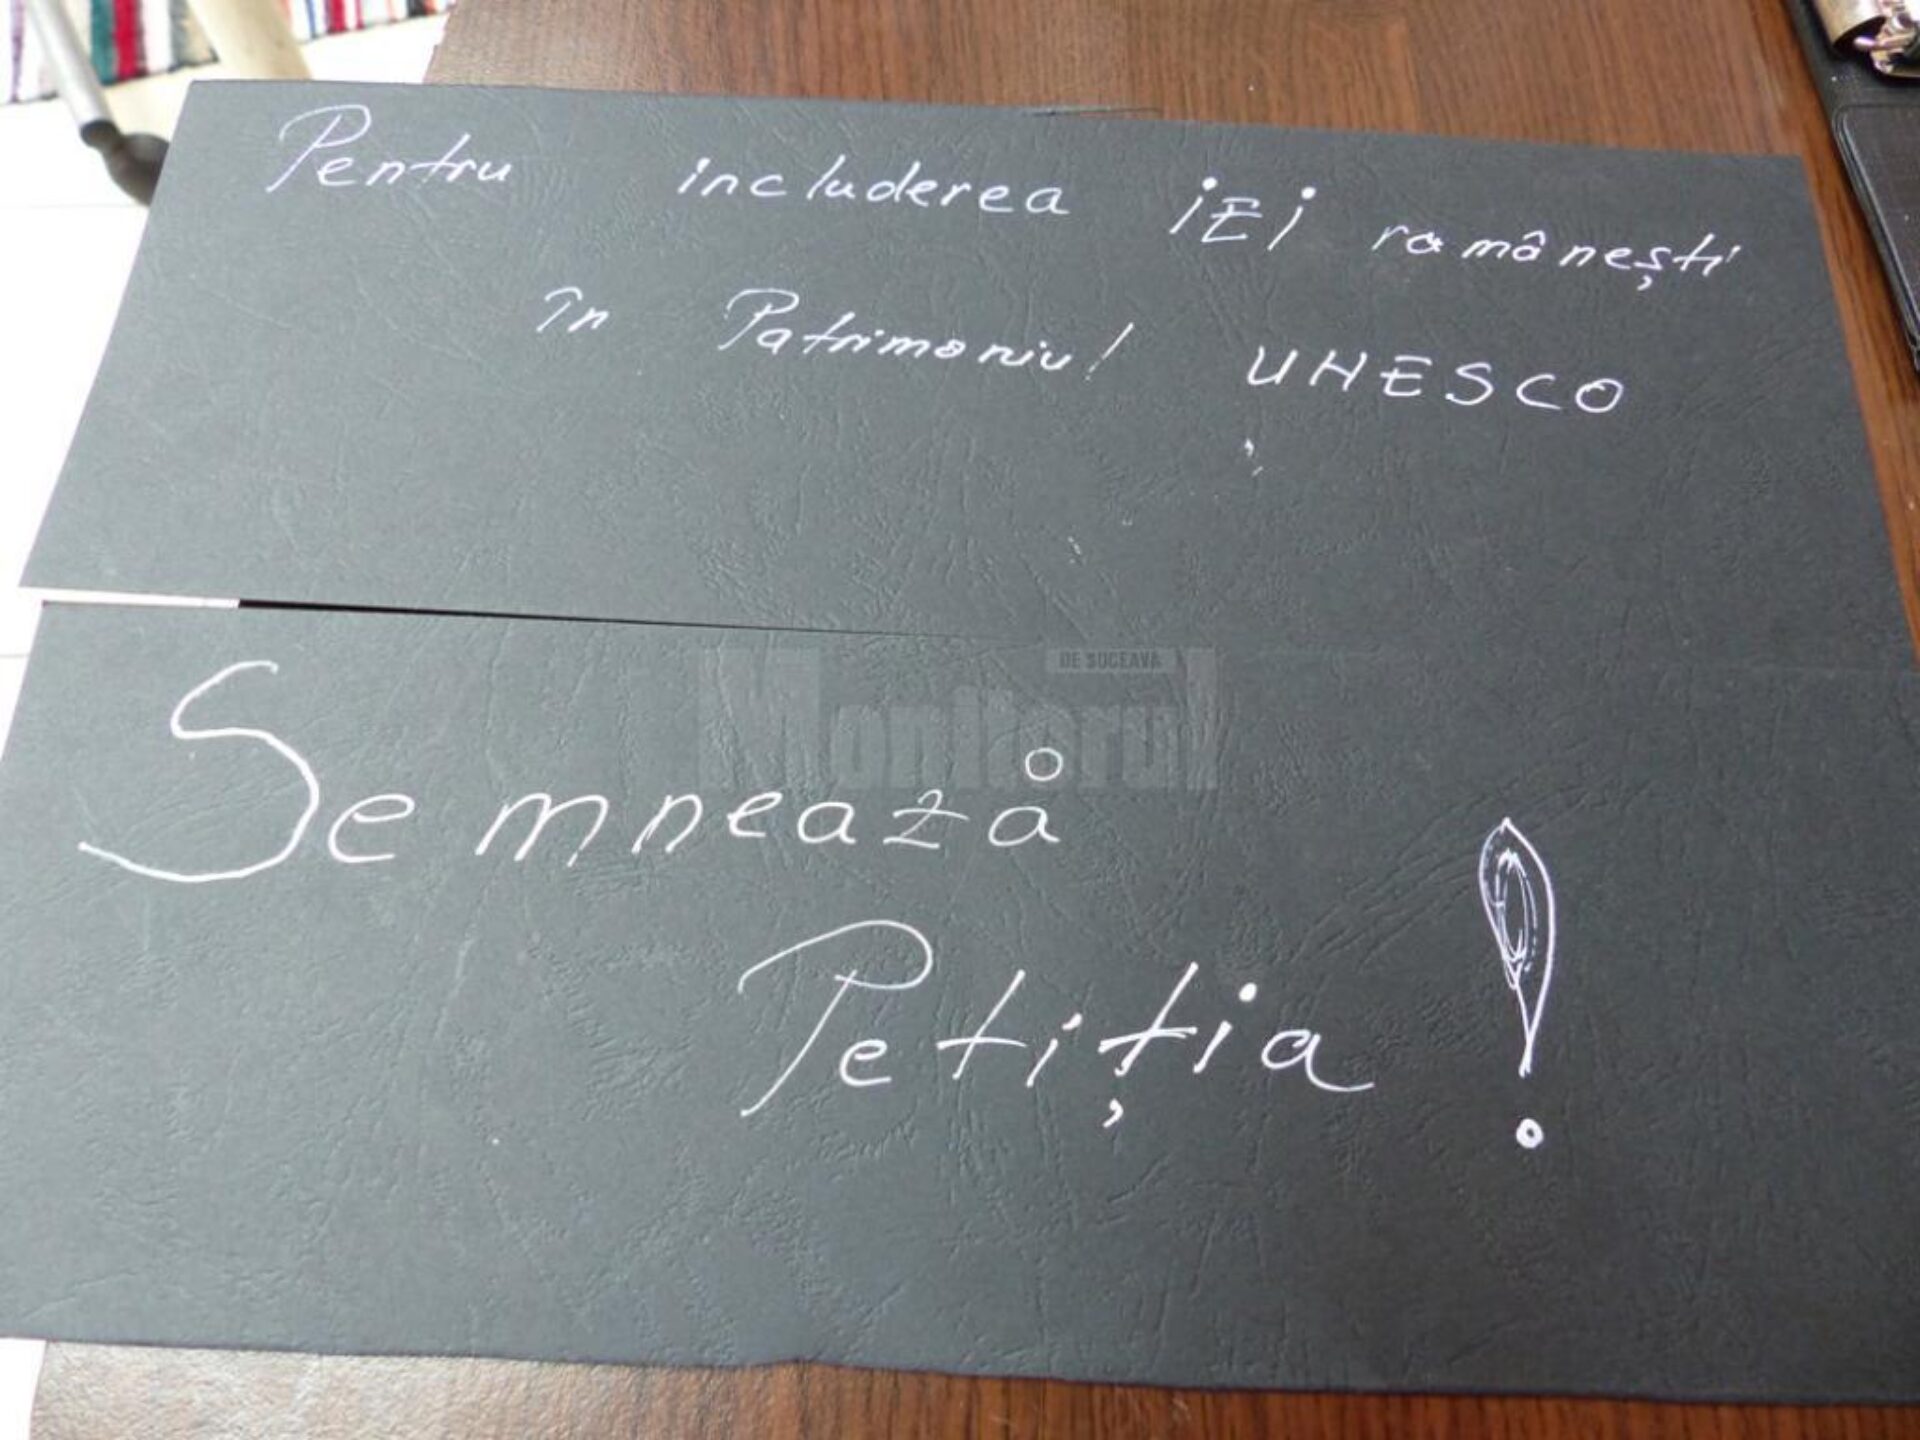 Pentru includerea IEI românești
în Patrimoniul UNESCO
DE SUCEAVA
Monitorul
Semnează
Petiția !